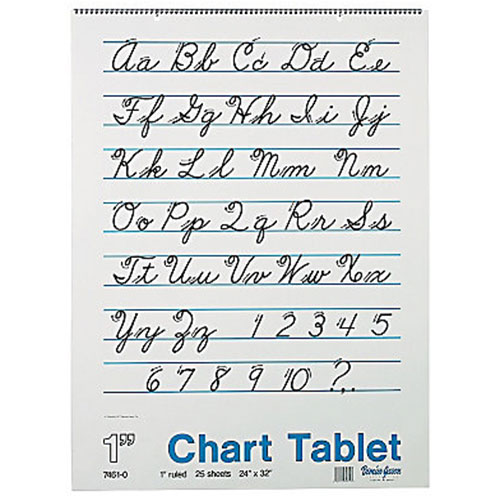 Aa Bb Cc Dd Ee
Ff Gg Hh Ii Jj
Kk Ll Mm Nn
Oo Pp Qq Rr Ss
Tt Uu Vv Ww Xx
Yy Zz 1 2 3 4 5
6 7 8 9 10 ?.,
1" Chart Tablet
7451-0 1" ruled 25 sheets 24" x 32"